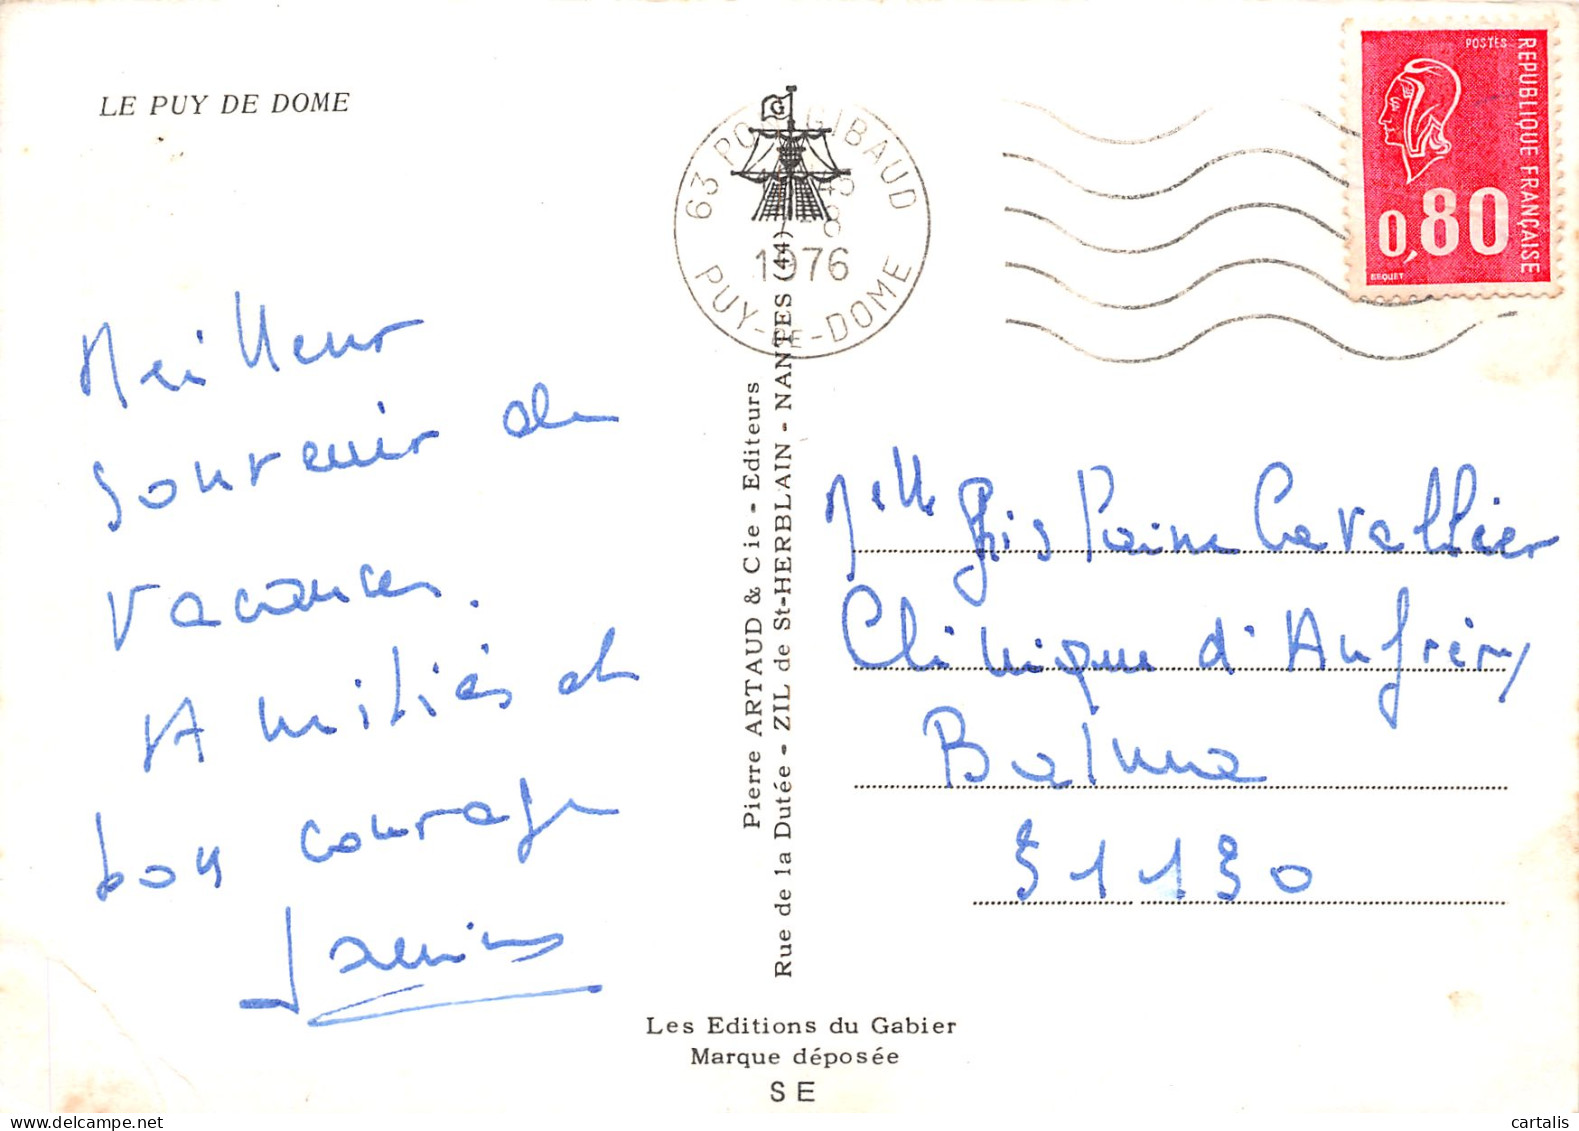 LE PUY DE DOME
Meilleur
souvenir de
vacances.
Amitiés et
bon courage
63 PONTGIBAUD
1976
PUY-DE-DOME
POSTES
REPUBLIQUE FRANÇAISE
0,80
BEQUET
Pierre ARTAUD & Cie - Editeurs
Rue de la Dutée - ZIL de St-HERBLAIN - NANTES (44)
Melle Ghislaine Cavallier
Clinique d'Aufréry
Balma
31130
Les Editions du Gabier
Marque déposée
SE
cartalis